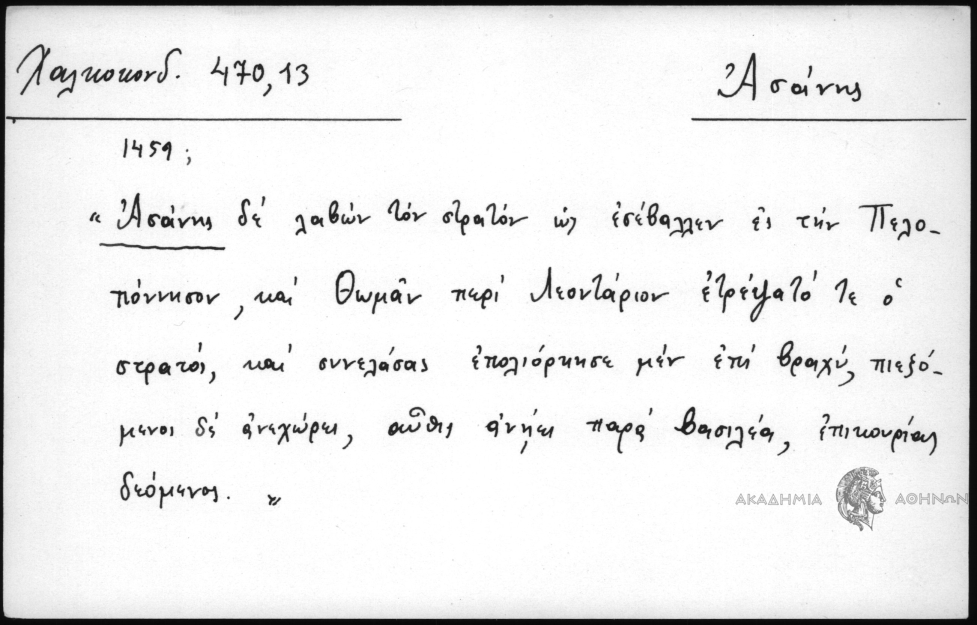 Χαλκοκονδ. 470,13
Ἀσάνης
1459 ;
“ Ἀσάνης δὲ λαβὼν τὸν στρατὸν ὡς ἐσέβαλλεν ἐς τὴν Πελο-
πόννησον, καὶ Θωμᾶν περὶ Λεοντάριον ἐτρέψατό τε ὁ
στρατός, καὶ συνελάσας ἐπολιόρκησε μὲν ἐπὶ βραχύ, πιεζό-
μενος δὲ ἀνεχώρει, αὖθις ἀνῄει παρὰ βασιλέα, ἐπικουρίας
δεόμενος. „
ΑΚΑΔΗΜΙΑ ΑΘΗΝΩΝ